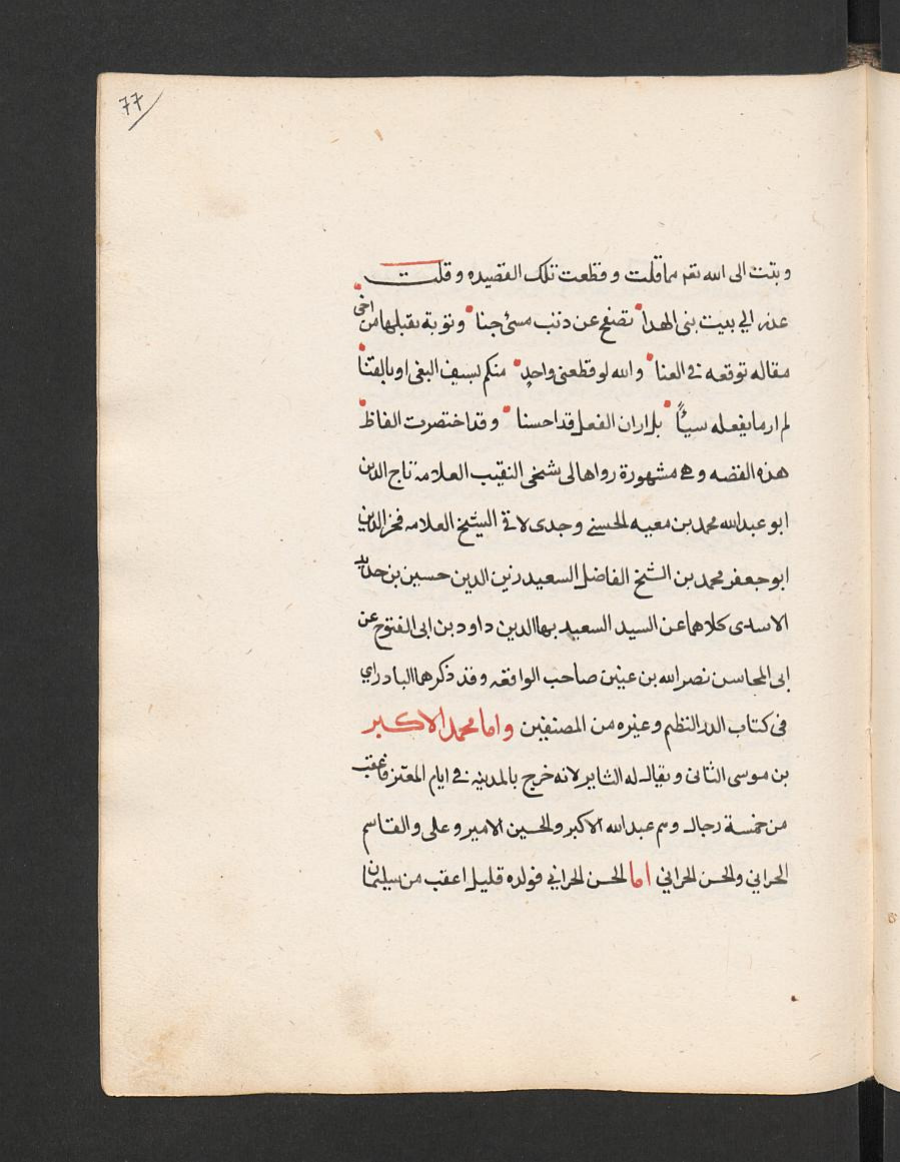 77
وبتت الى الله تعم مما قلت وقطعت تلك القصيده وقلت
عذر الي بيت بني الهدا تصفح عن ذنب مسئ جنا وتوبة تقبلها من اخى
مقاله توقعه في العنا والله لو قطعني واحدٍ منكم بسيف البغى او بالقنا
لم ار ما يفعله سيئاً بل اران الفعل قد احسنا وقد اختصرت الفاظ
هذه القصه وهي مشهورة رواها لى شيخى النقيب العلامه تاج الدين
ابو عبدالله محمد بن معيه الحسنى وجدى لاقى الشيخ العلامه فخر الدين
ابو جعفر محمد بن الشيخ الفاضل السعيد زين الدين حسين بن حديد
الاسدى كلاهما عن السيد السعيد بها الدين داود بن ابى الفتوح عن
ابى المحاسن نصر الله بن عينين صاحب الواقعه وقد ذكرها البادراي
فى كتاب الدر النظم وغيره من المصنفين واما محمد الاكبر
بن موسى الثانى ويقال له الثاير لانه خرج بالمدينه في ايام المعتز فاعقب
من خمسة رجال وهم عبدالله الاكبر والحسين الامير وعلى والقاسم
الحرانى والحسن الحراني اما الحسن الحرانى فولده قليل اعقب من سليمان